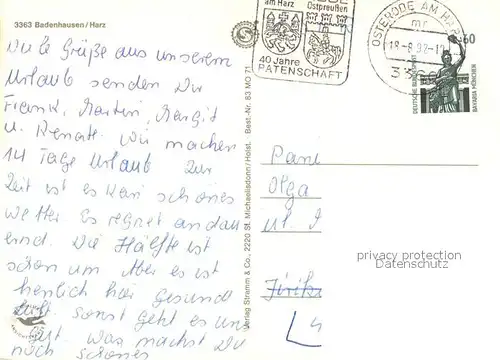 3363 Badenhausen / Harz
am Harz
Ostpreußen
40 Jahre
PATENSCHAFT
OSTERODE AM HARZ
mr
18-8.92-1
3360
60
DEUTSCHE BUNDESPOST
BAVARIA MÜNCHEN
Verlag Stramm & Co., 2220 St. Michaelisdonn/Holst. Best.-Nr. 83 MO 71
Grüße aus unserem
Urlaub senden Dir
Frank, Martin, Margit
u. Renate. Wir machen
14 Tage Urlaub Zur
Zeit ist es kein schönes
Wetter Es regnet andau
ernd. Die Hälfte ist
schon um Aber es ist
herrlich hier gesund
Luft. sonst geht es uns
gut. Was machst Du
noch schönes
Pani
Olga
ul.
privacy protection
Datenschutz